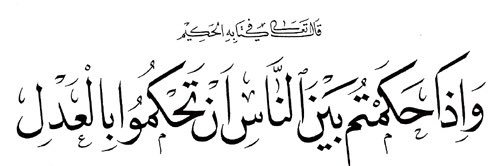 قال تعالى في كتابه الحكيم
وَإِذَا حَكَمْتُم بَيْنَ النَّاسِ أَنْ تَحْكُمُوا بِالْعَدْلِ